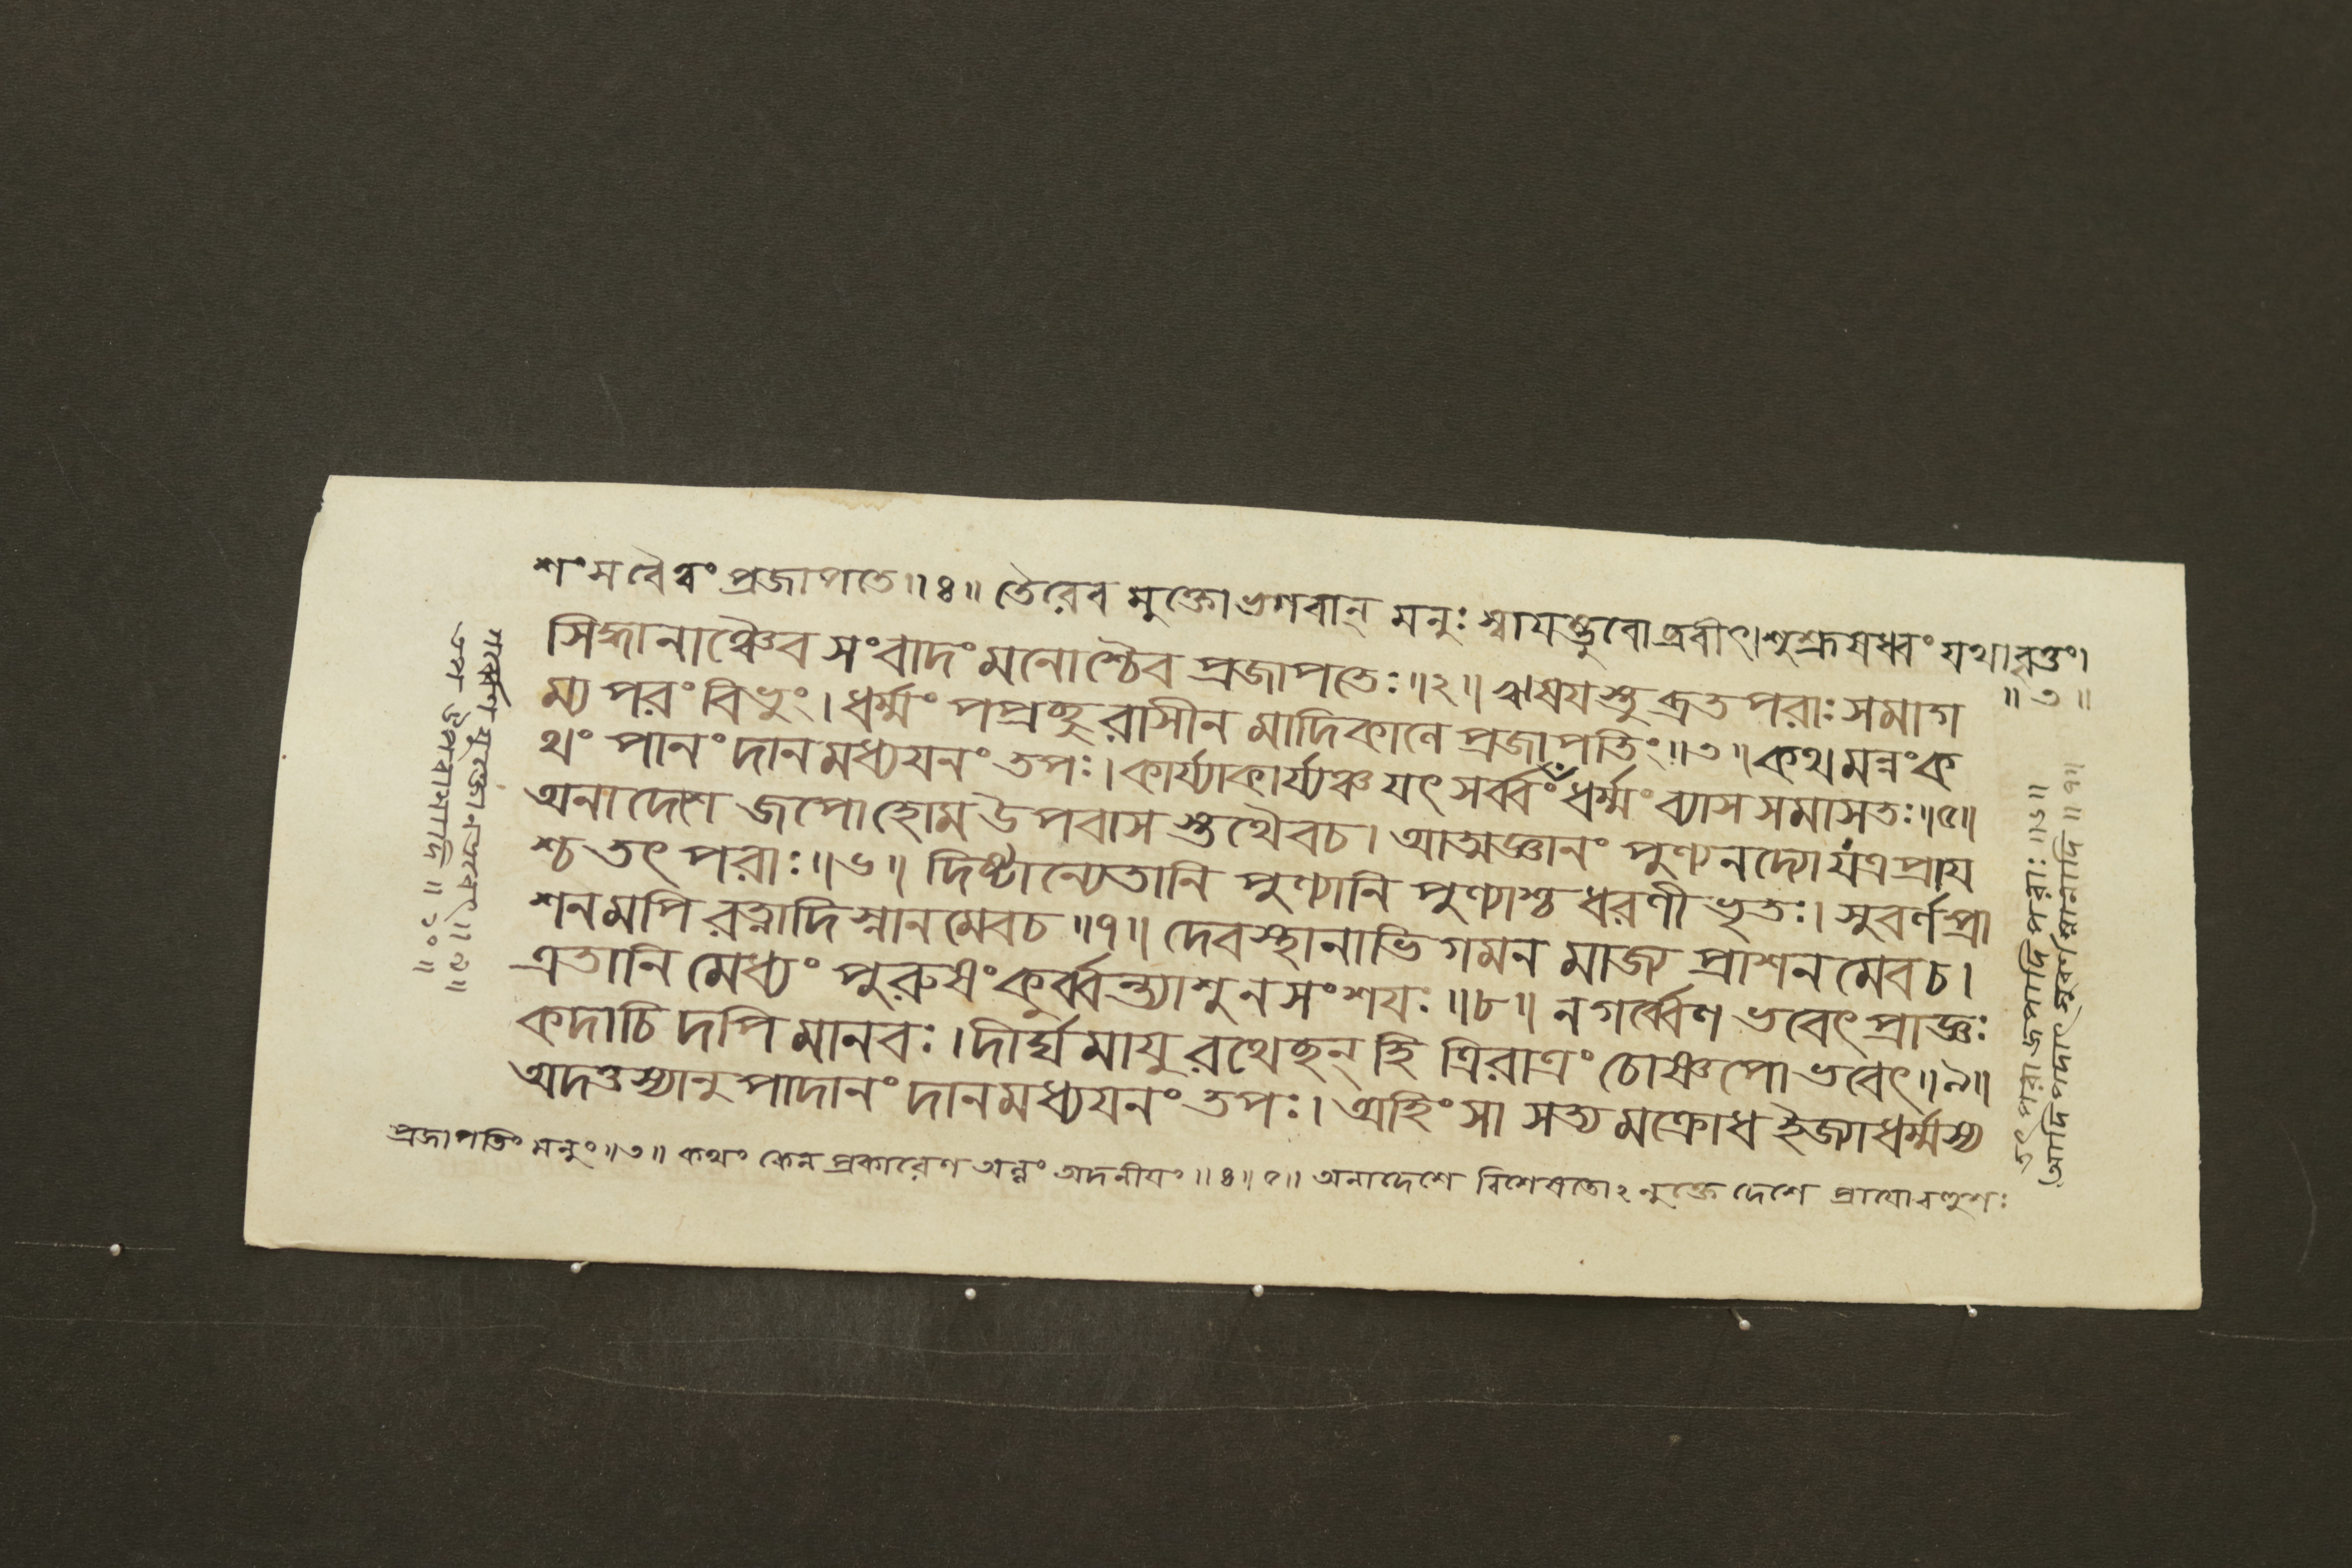 শং মবৈবং প্রজাপতে॥৪॥ তৈরেব মুক্তো ভগবান্ মনুঃ স্বায়ম্ভুবো ব্রবীৎ। শুশ্রূষধ্বং যথাবৃত্তং।
॥৩॥
সিদ্ধানাঞ্চৈব সংবাদং মনোশ্চৈব প্রজাপতেঃ॥২॥ ঋষয়স্তু ব্রতপরাঃ সমাগ
ম্য পরং বিভুং। ধর্ম্মং পপ্রচ্ছু রাসীন মাদিকালে প্রজাপতিং॥৩॥ কথমন্নং ক
থং পানং দানমধ্যয়নং তপঃ। কার্য্যাকার্য্যঞ্চ যৎ সর্ব্বং ধর্ম্মং ব্যাস সমাসতঃ॥৫॥
অনাদেশে জপো হোম উপবাস স্তথৈবচ। আত্মজ্ঞানং পুণ্যনদ্যো যত্র প্রায়
শ্চ তৎ পরাঃ॥৬॥ দিষ্টান্যেতানি পুণ্যানি পুণ্যাশ্চ ধরণী ভৃতঃ। সুবর্ণপ্রা
শনমপি রত্নাদি স্নানমেবচ॥৭॥ দেবস্থানাভি গমন মাজ্য প্রাশন মেবচ।
এতানি মেধ্যং পুরুষং কুর্ব্বন্ত্যাশু ন সংশয়ঃ॥৮॥ ন গর্ব্বেণ ভবেৎ প্রাজ্ঞঃ
কদাচি দপি মানবঃ। দীর্ঘ মায়ু রথেচ্ছন্ হি ত্রিরাত্রং চোষ্ণপো ভবেৎ॥৯॥
অদত্তস্যানুপাদানং দানমধ্যয়নং তপঃ। অহিংসা সত্য মক্রোধ ইজ্যা ধর্ম্মস্য
প্রজাপতিং মনুং॥৩॥ কথং কেন প্রকারেণ অন্নং অদনীয়ং॥৪॥৫॥ অনাদেশে বিশেষতোঽনুক্তে দেশে প্রায়ো
তৎ পরা জপাদি পরাঃ॥৬॥
আদিপদাৎ সুবর্ণস্নানাদি॥৭॥
গর্ব্বেণ যুক্তো ন ভবেৎ॥৯॥
তপ উপবাসাদি॥১০॥